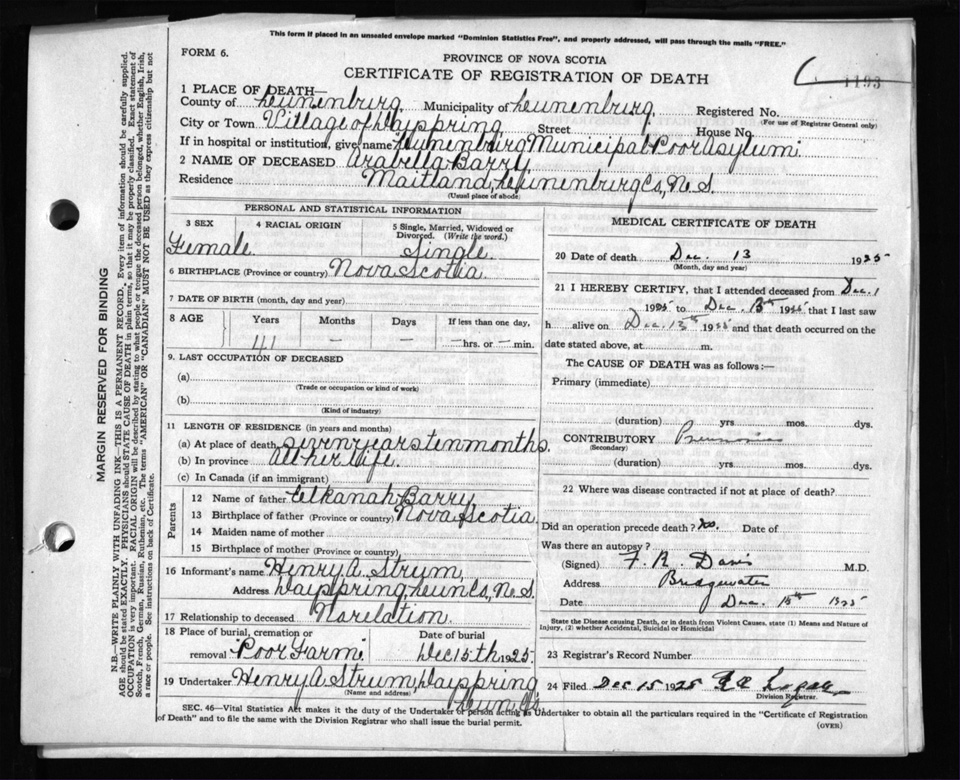 This form if placed in an unsealed envelope marked "Dominion Statistics Free", and properly addressed, will pass through the mails "FREE."
FORM 6.
PROVINCE OF NOVA SCOTIA
CERTIFICATE OF REGISTRATION OF DEATH
1193
1 PLACE OF DEATH—
County of Lunenburg Municipality of Lunenburg Registered No.
(For use of Registrar General only)
City or Town Village of Dayspring Street House No.
If in hospital or institution, give name Lunenburg Municipal Poor Asylum
2 NAME OF DECEASED Arabella Barry
Residence Maitland, Lunenburg Co, N. S.
(Usual place of abode)
PERSONAL AND STATISTICAL INFORMATION
3 SEX 4 RACIAL ORIGIN 5 Single, Married, Widowed or Divorced. (Write the word.)
Female Single
6 BIRTHPLACE (Province or country) Nova Scotia
7 DATE OF BIRTH (month, day and year)
8 AGE Years Months Days If less than one day,
41 — — —hrs. or — min.
9. LAST OCCUPATION OF DECEASED
(a)
(Trade or occupation or kind of work)
(b)
(Kind of industry)
11 LENGTH OF RESIDENCE (in years and months)
(a) At place of death seven years ten months.
(b) In province All her life.
(c) In Canada (if an immigrant)
Parents
12 Name of father Elkanah Barry
13 Birthplace of father (Province or country) Nova Scotia
14 Maiden name of mother
15 Birthplace of mother (Province or country)
16 Informant's name Henry A. Strum,
Address Dayspring, Lun Co, N. S.
17 Relationship to deceased No relation.
18 Place of burial, cremation or removal Poor Farm Date of burial Dec 15th 1925.
19 Undertaker Henry A Strum, Dayspring
(Name and address) Lun Co
MEDICAL CERTIFICATE OF DEATH
20 Date of death Dec. 13 1925
(Month, day and year)
21 I HEREBY CERTIFY, that I attended deceased from Dec. 1
1925 to Dec. 13th 1925 that I last saw
h alive on Dec. 13th 1925 and that death occurred on
date stated above, at m.
The CAUSE OF DEATH was as follows:—
Primary (immediate)
(duration) yrs mos. dys.
CONTRIBUTORY Pneumonia
(Secondary)
(duration) yrs mos. dys.
22 Where was disease contracted if not at place of death?
Did an operation precede death? no. Date of
Was there an autopsy?
(Signed) F. R. Davis M.D.
Address Bridgewater
Date Dec. 15th 1925
State the Disease causing Death, or in death from Violent Causes, state (1) Means and Nature of Injury, (2) whether Accidental, Suicidal or Homicidal
23 Registrar's Record Number
24 Filed Dec 15 1925
Division Registrar.
SEC. 46—Vital Statistics Act makes it the duty of the Undertaker or person acting as Undertaker to obtain all the particulars required in the "Certificate of Registration
of Death" and to file the same with the Division Registrar who shall issue the burial permit.
(OVER)
MARGIN RESERVED FOR BINDING
N.B.—WRITE PLAINLY WITH UNFADING INK—THIS IS A PERMANENT RECORD. Every item of information should be carefully supplied.
AGE should be stated EXACTLY. PHYSICIANS should STATE CAUSE OF DEATH in plain terms, so that it may be properly classified. Exact statement of
OCCUPATION is very important. RACIAL ORIGIN will be described by stating to what people or tongue the deceased person belonged, whether English, Irish,
Scotch, French, German, Russian, Ruthenian, etc. The terms "AMERICAN" OR "CANADIAN" MUST NOT BE USED as they express citizenship but not
a race or people. See instructions on back of Certificate.